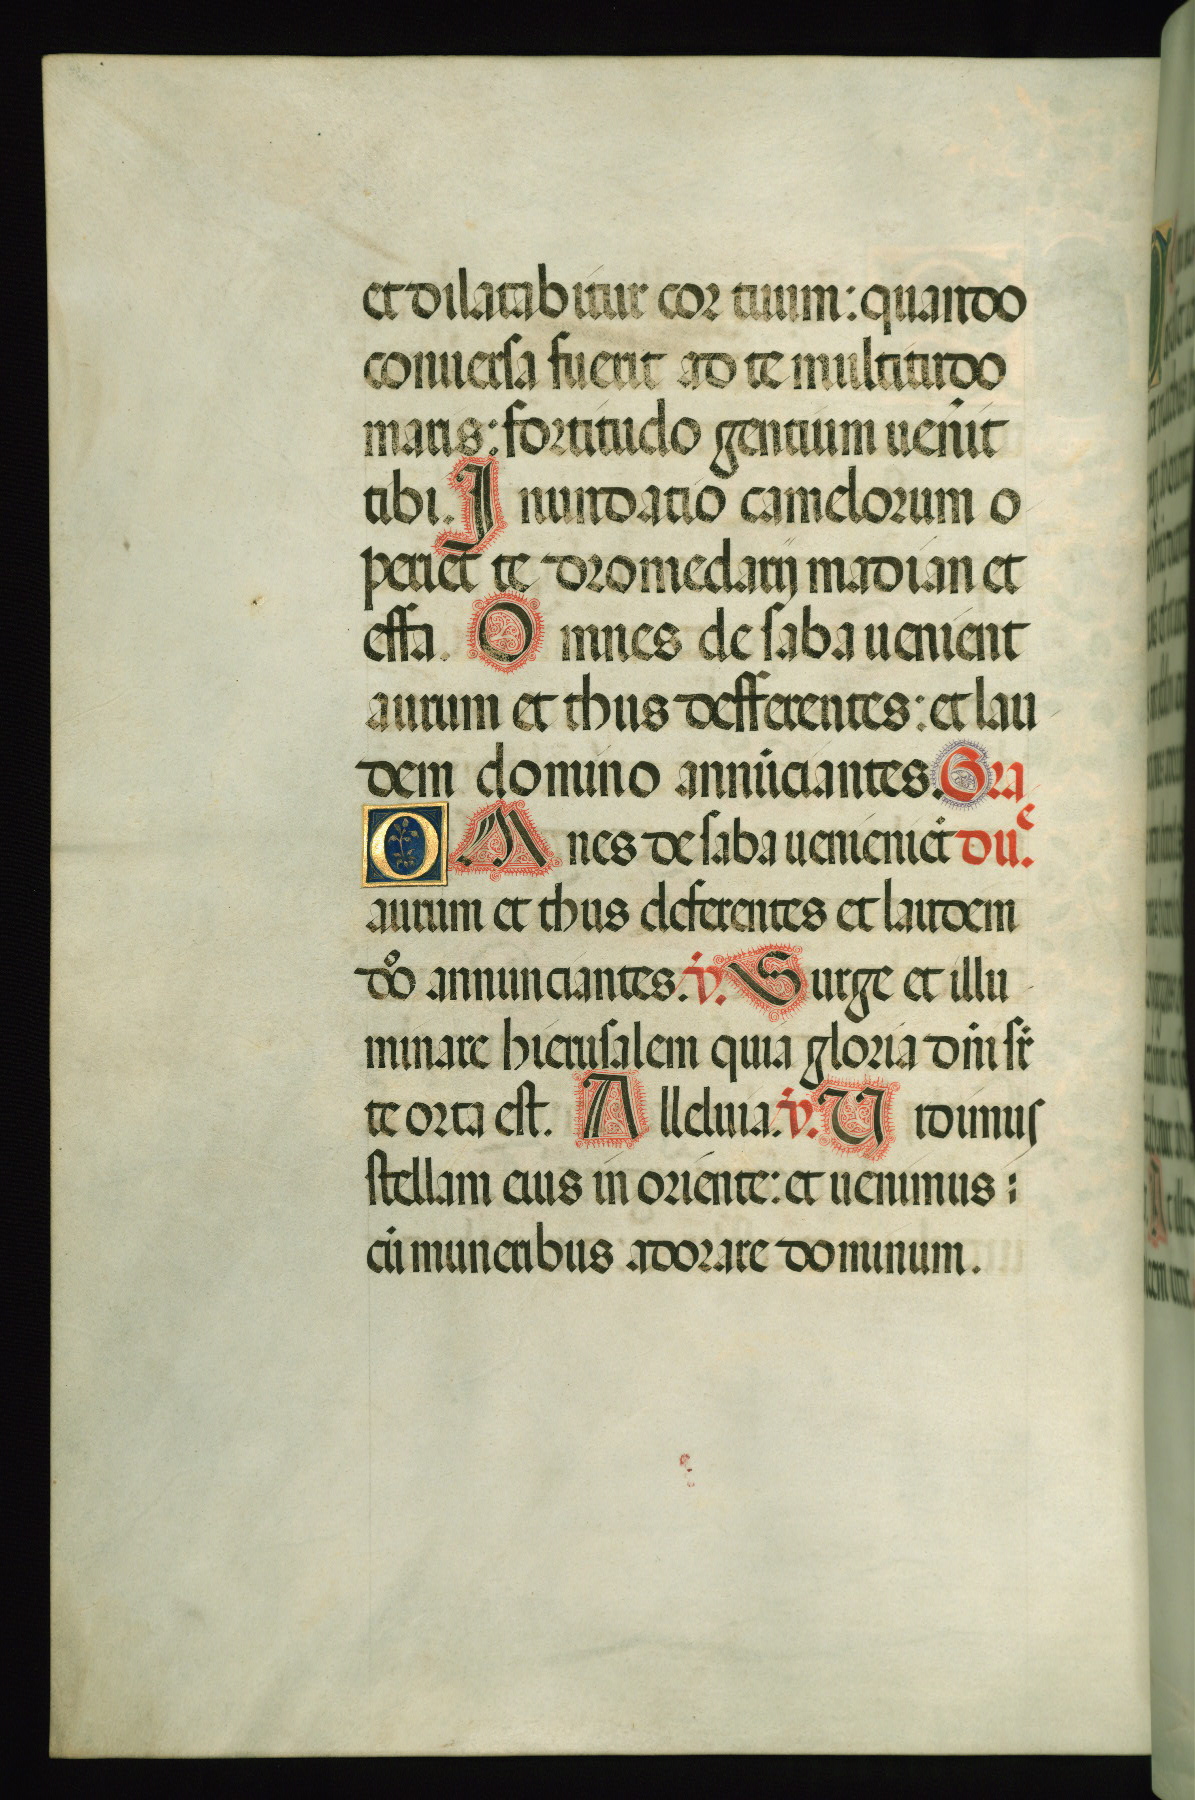 et dilatabitur cor tuum: quando
conuersa fuerit ad te multitudo
maris: fortitudo gentium uenit
tibi. Inundatio camelorum o
periet te dromedarij madian et
effa. Omnes de saba uenient
aurum et thus defferentes: et lau
dem domino annūciantes. Gra
OMnes de saba uenieniēt duc̄.
aurum et thus deferentes et laudem
dño annunciantes. v̇. Surge et illu
minare hierusalem quia gloria dñi sr̄
te orta est. Alleluia. v̇. Uidimus
stellam eius in oriente: et uenimus
cū muneribus adorare dominum.